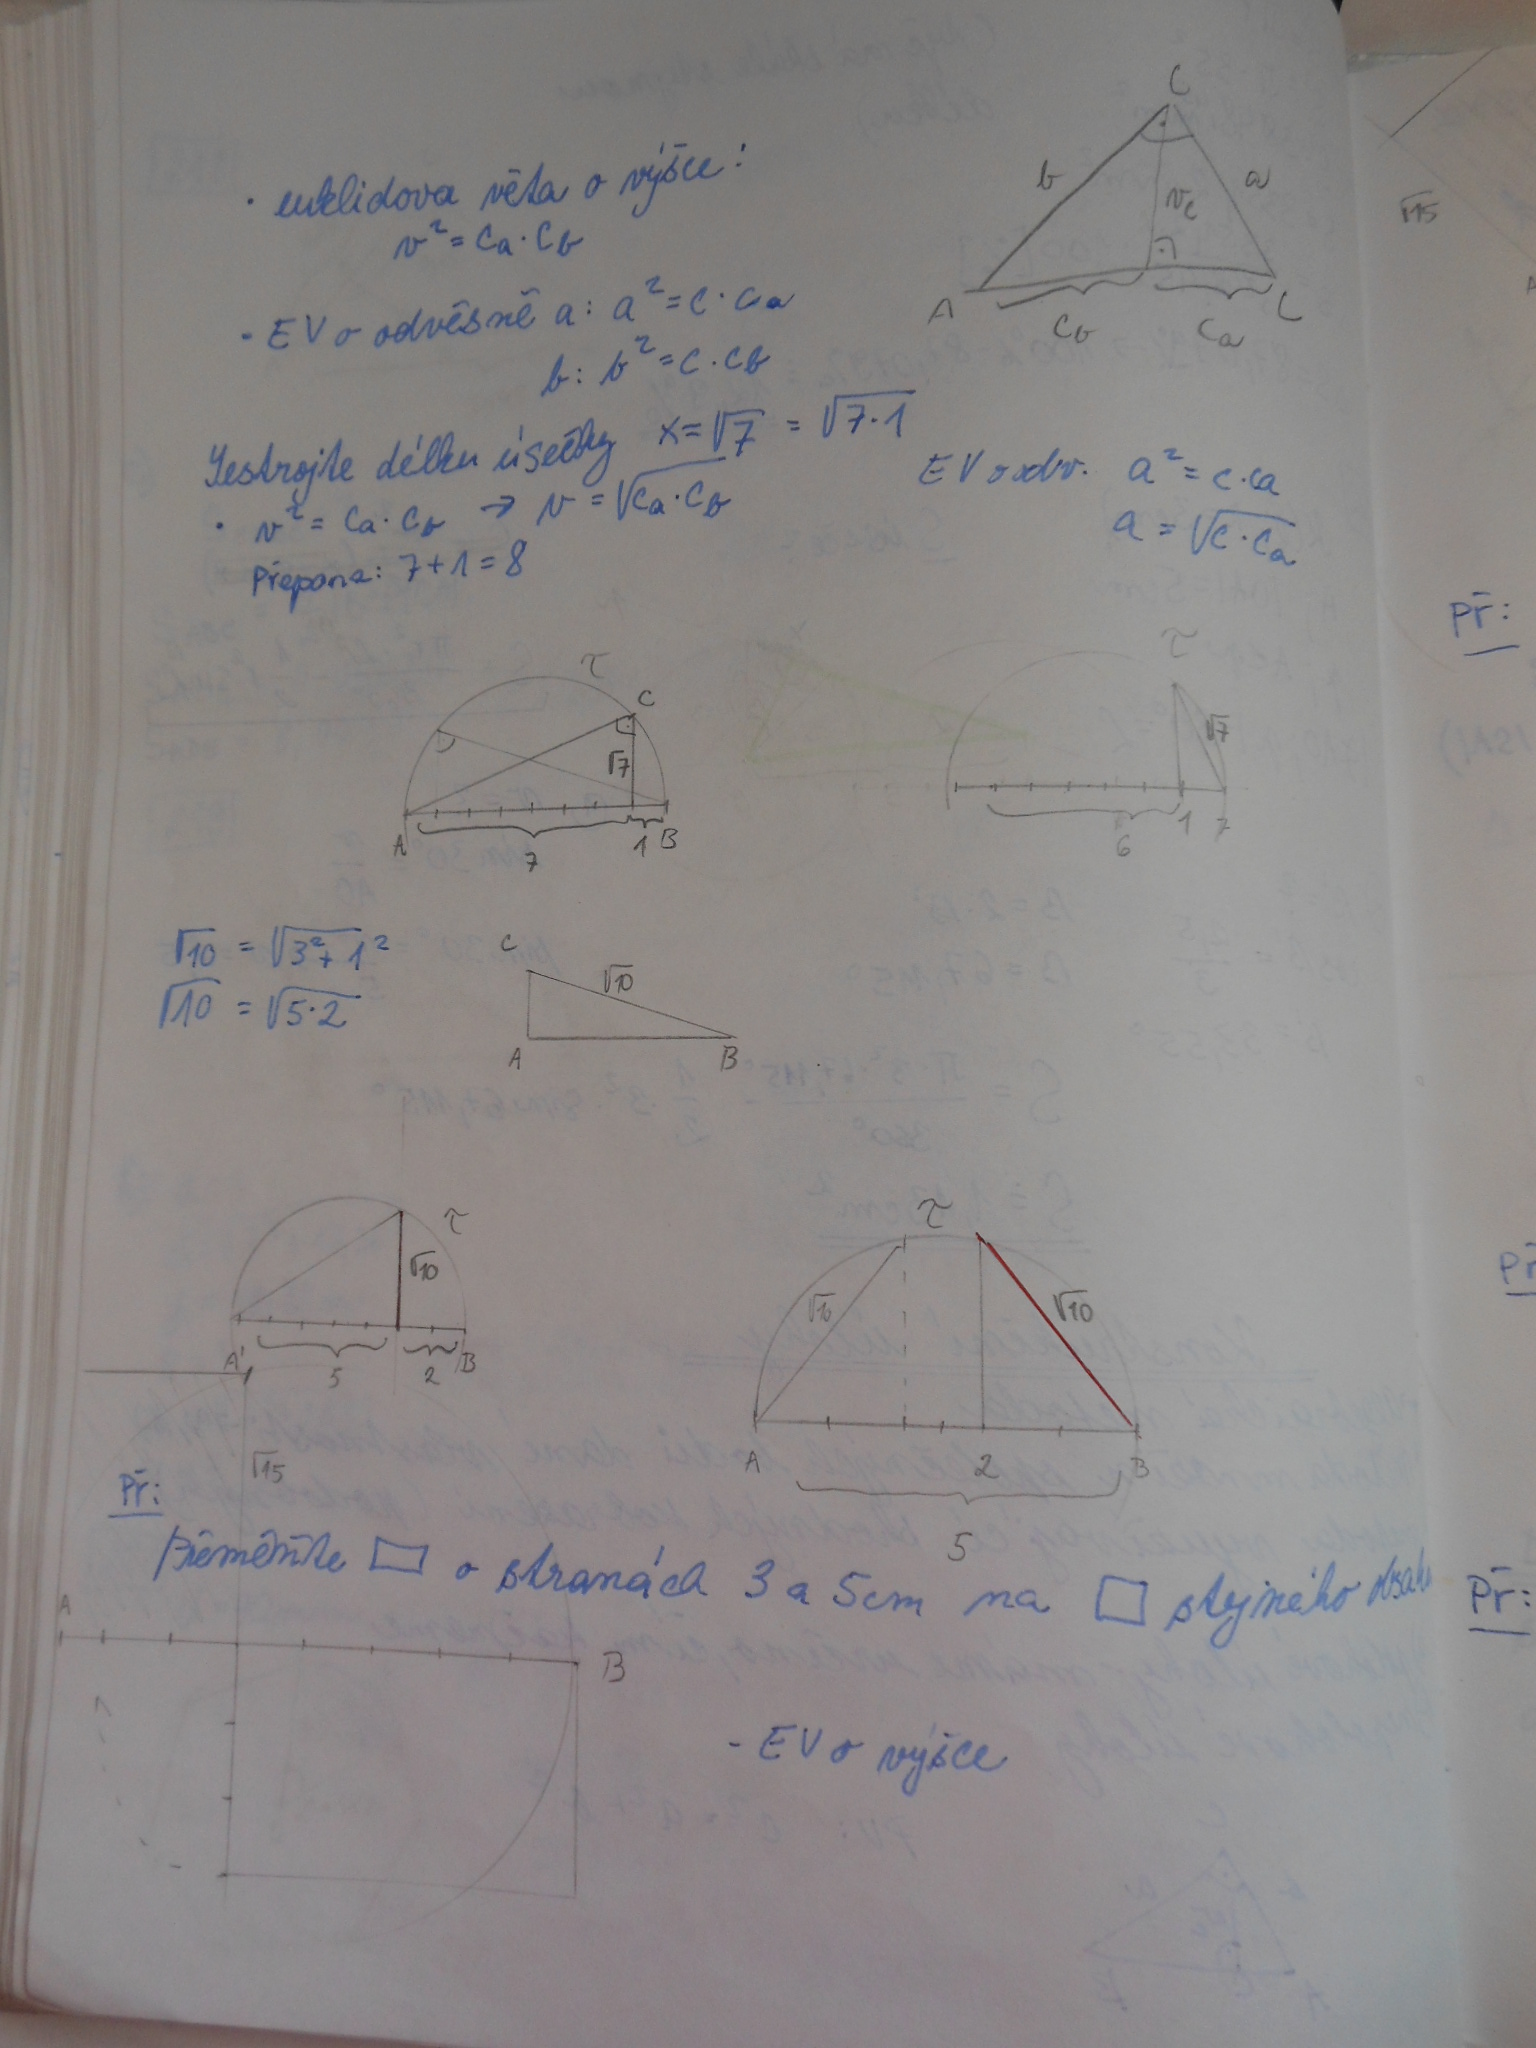 C
• euklidova věta o výšce:
v² = ca · cb
b
a
vc
A
cb
ca
C
- EV o odvěsně a: a² = c · ca
b: b² = c · cb
Sestrojte délku úsečky x = √7 = √7·1
• v² = ca · cb → v = √ca · cb
Přepona: 7 + 1 = 8
EV o odv. a² = c·ca
a = √c · ca
τ
C
√7
A
7
1
B
τ
√7
6
1
7
√10 = √3² + 1²
√10 = √5·2
C
√10
A
B
τ
√10
A
5
2
B
τ
√10
√10
A
2
B
5
√15
Př:
Přeměňte ▭ o stranách 3 a 5cm na □ stejného obsahu
A
B
- EV o výšce
√15
Př:
Př: